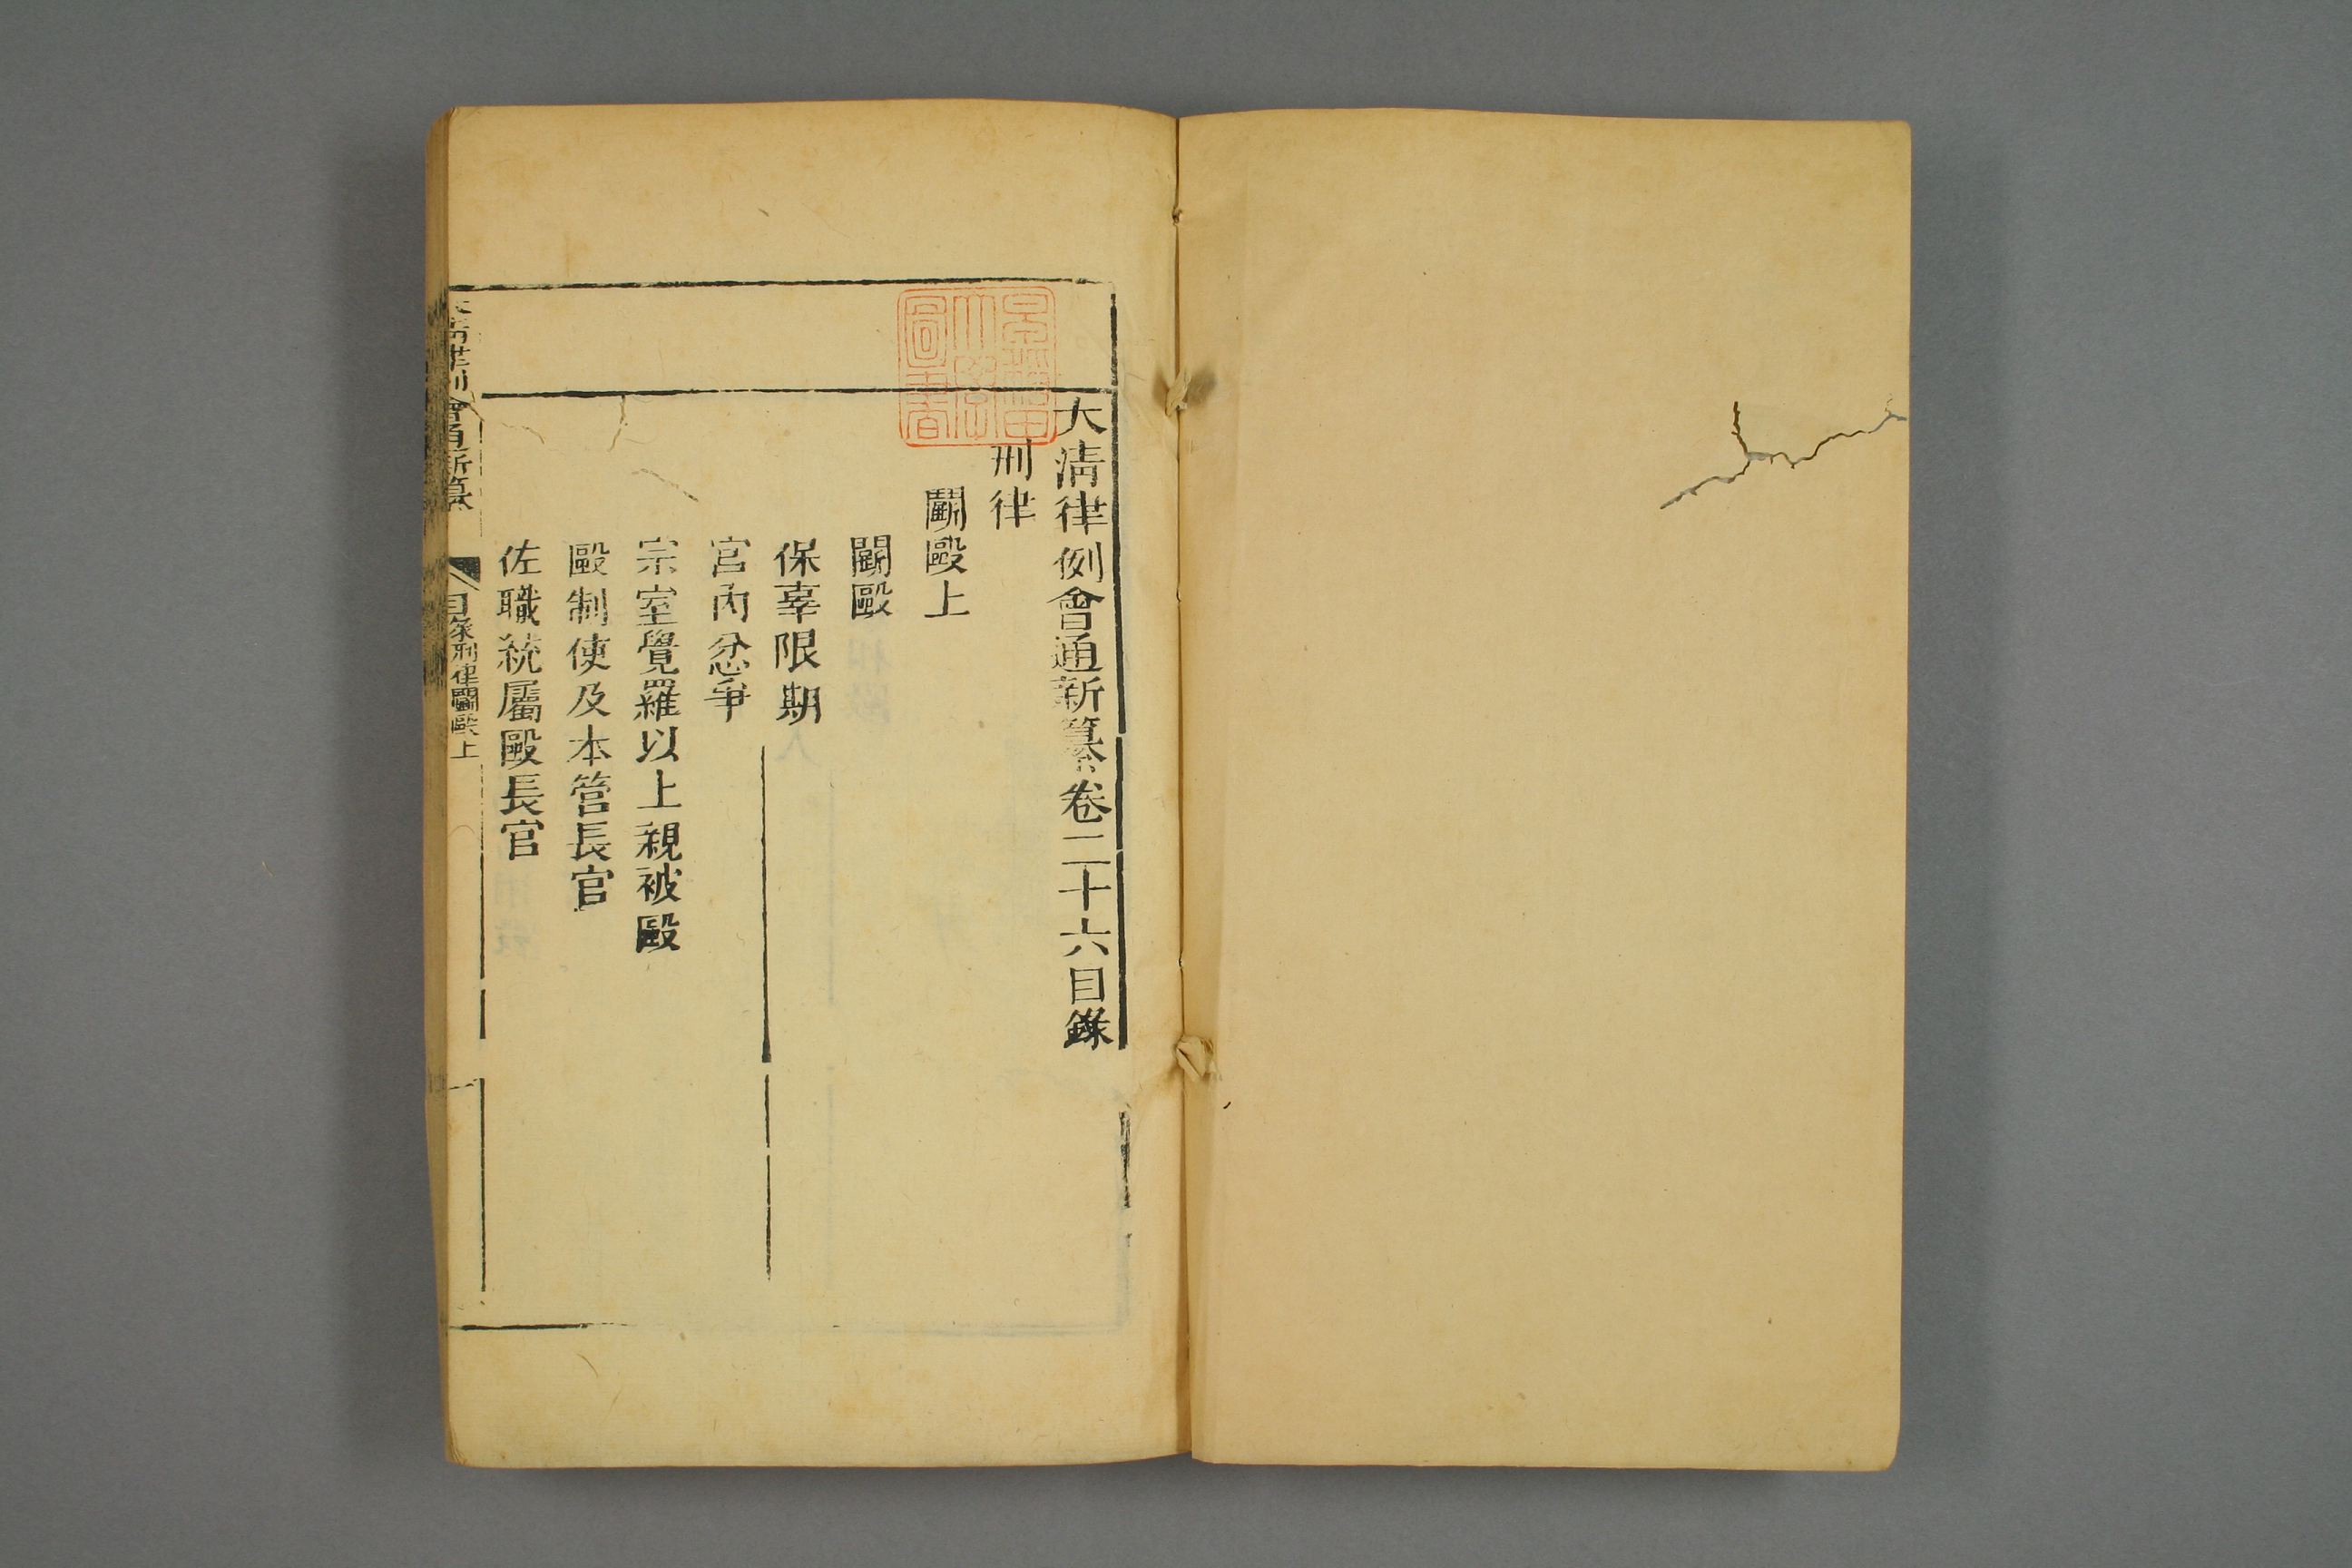 大清律例會通新纂卷二十六目錄
刑律
鬭毆上
鬭毆
保辜限期
宮內忿爭
宗室覺羅以上親被毆
毆制使及本管長官
佐職統屬毆長官
大清律例會通新纂
目錄刑律鬭毆上
一
早稻田大學圖書